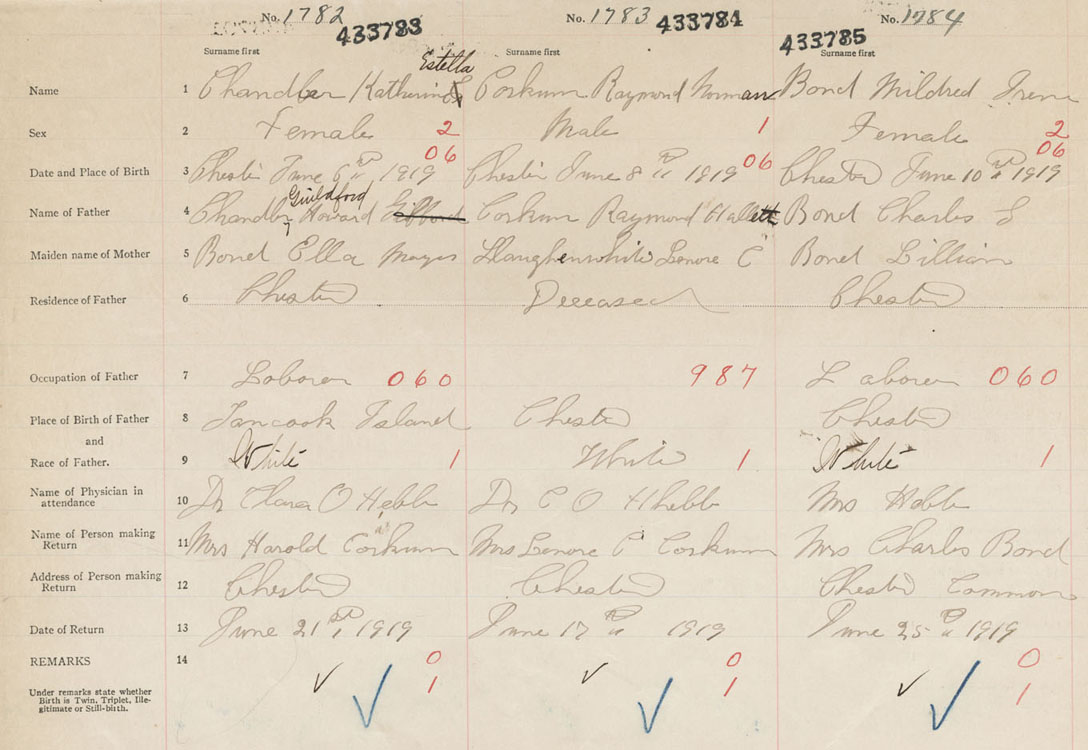 No. 1782 433783 No. 1783 433784 No. 1784 433785
Surname first Surname first Surname first
Estella
Name 1 Chandler Katherine Corkum Raymond Norman Bond Mildred Irene
Sex 2 Female 2 Male 1 Female 2
06 06 06
Date and Place of Birth 3 Chester June 6th 1919 Chester June 8th 1919 Chester June 10th 1919
Guildford
Name of Father 4 Chandler, Howard Gifford Corkum Raymond Hallett Bond Charles S
Maiden name of Mother 5 Bond Ella Mayes Slaughenwhite Lenore C Bond Lillian
Residence of Father 6 Chester Deceased Chester
Occupation of Father 7 Laborer 060 987 Laborer 060
Place of Birth of Father 8 Tancook Island Chester Chester
and
Race of Father. 9 White 1 White 1 White 1
Name of Physician in
attendance 10 Dr Clara O Hebb Dr C O Hhebb Mrs Hebb
Name of Person making
Return 11 Mrs Harold Corkum Mrs Lenore C Corkum Mrs Charles Bond
Address of Person making
Return 12 Chester Chester Chester Common
Date of Return 13 June 21st, 1919 June 17th 1919 June 25th 1919
REMARKS 14 0 0 0
Under remarks state whether
Birth is Twin, Triplet, Ille-
gitimate or Still-birth. 1 1 1